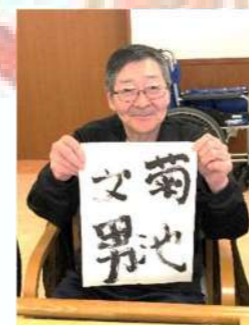 菊池
文男